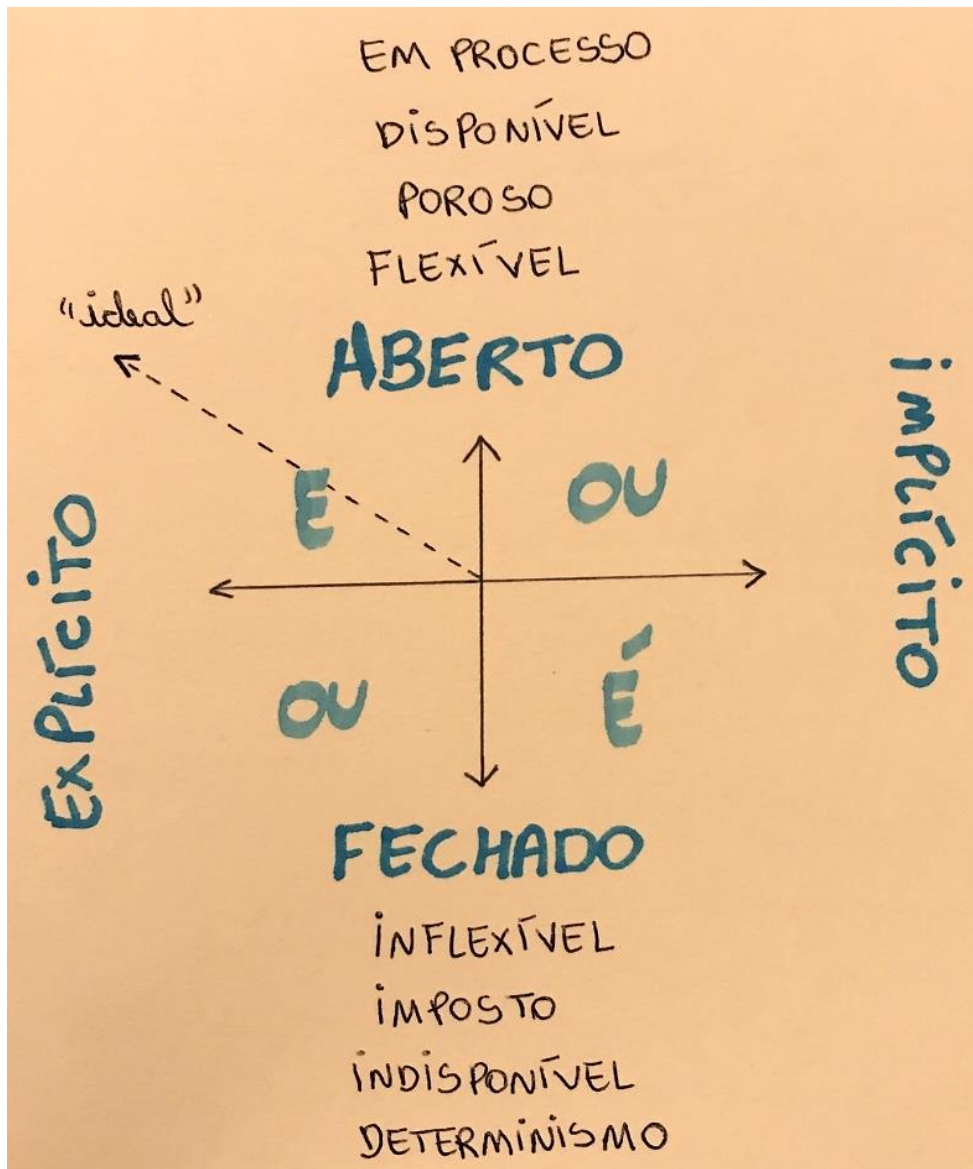 EM PROCESSO
DISPONÍVEL
POROSO
FLEXÍVEL
"ideal"
ABERTO
IMPLÍCITO
E
OU
EXPLÍCITO
OU
É
FECHADO
INFLEXÍVEL
IMPOSTO
INDISPONÍVEL
DETERMINISMO